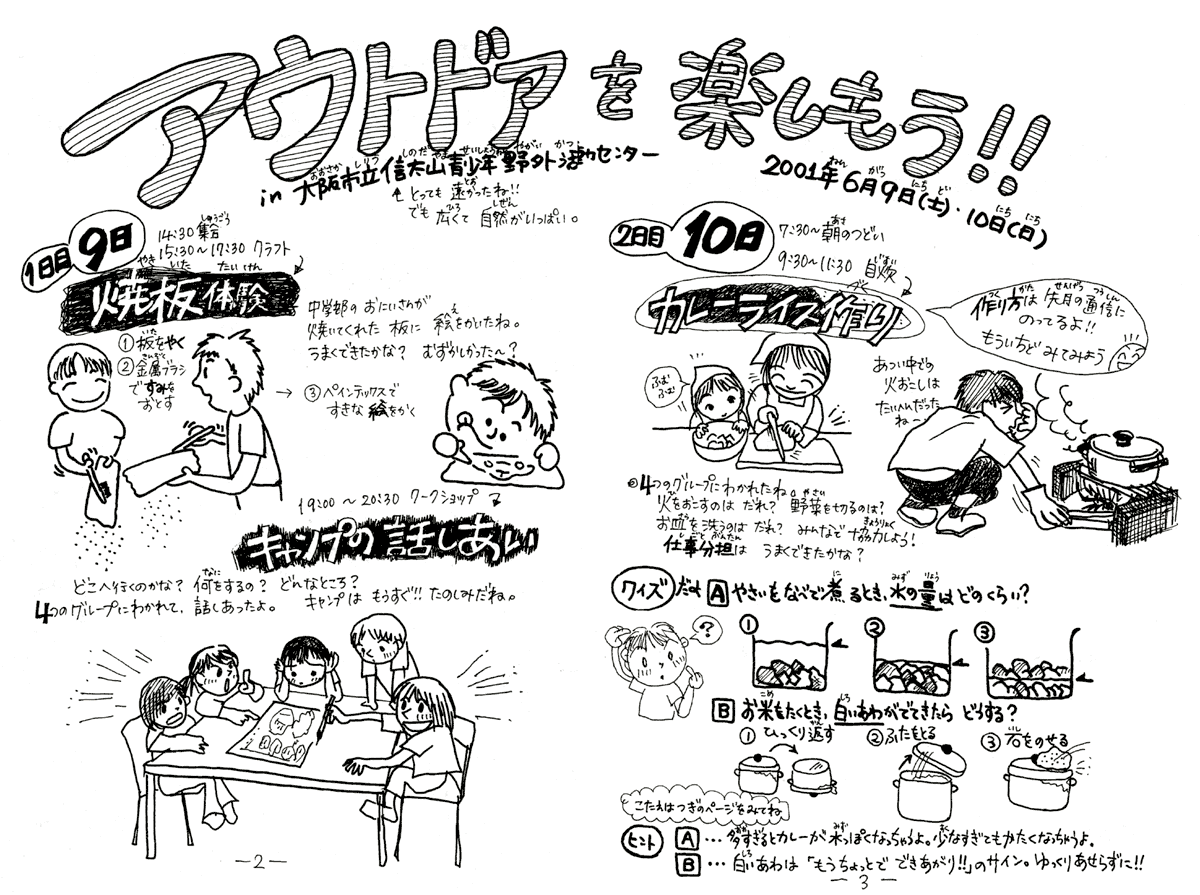 アウトドアを楽しもう!!
in 大阪市立信太山青少年野外活動センター
2001年6月9日(土)・10日(日)
↑とっても遠かったね!!
でも広くて自然がいっぱい。
1日目 9日
14:30 集合
15:30～17:30 クラフト
焼板体験
①板をやく
②金属ブラシ
ですみを
おとす
中学部のおにいさんが
焼いてくれた板に絵をかいたね。
うまくできたかな? むずかしかった～?
→ ③ペインテックスで
すきな絵をかく
19:00～20:30 ワークショップ
キャンプの話しあい
どこへ行くのかな? 何をするの? どんなところ?
4つのグループにわかれて、話しあったよ。
キャンプはもうすぐ!! たのしみだね。
—2—
2日目 10日
7:30～朝のつどい
9:30～11:30 自炊
カレーライス作り
作り方は先月の通信に
のってるよ!!
もういちどみてみよう
あつい中での
火おこしは
たいへんだった
ね～
4つのグループにわかれたね。
火をおこすのはだれ? 野菜を切るのは?
お皿を洗うのはだれ? みんなで協力しよう!
仕事分担はうまくできたかな?
クイズだよ A やさいをなべで煮るとき、水の量はどのくらい?
?
① ② ③
B お米をたくとき、白いあわがでてきたらどうする?
①ひっくり返す ②ふたをとる ③石をのせる
こたえはつぎのページをみてね
ヒント A…多すぎるとカレーが水っぽくなっちゃうよ。少なすぎてもかたくなっちゃうよ。
B…白いあわは「もうちょっとでできあがり!!」のサイン。ゆっくりあせらずに!!
—3—